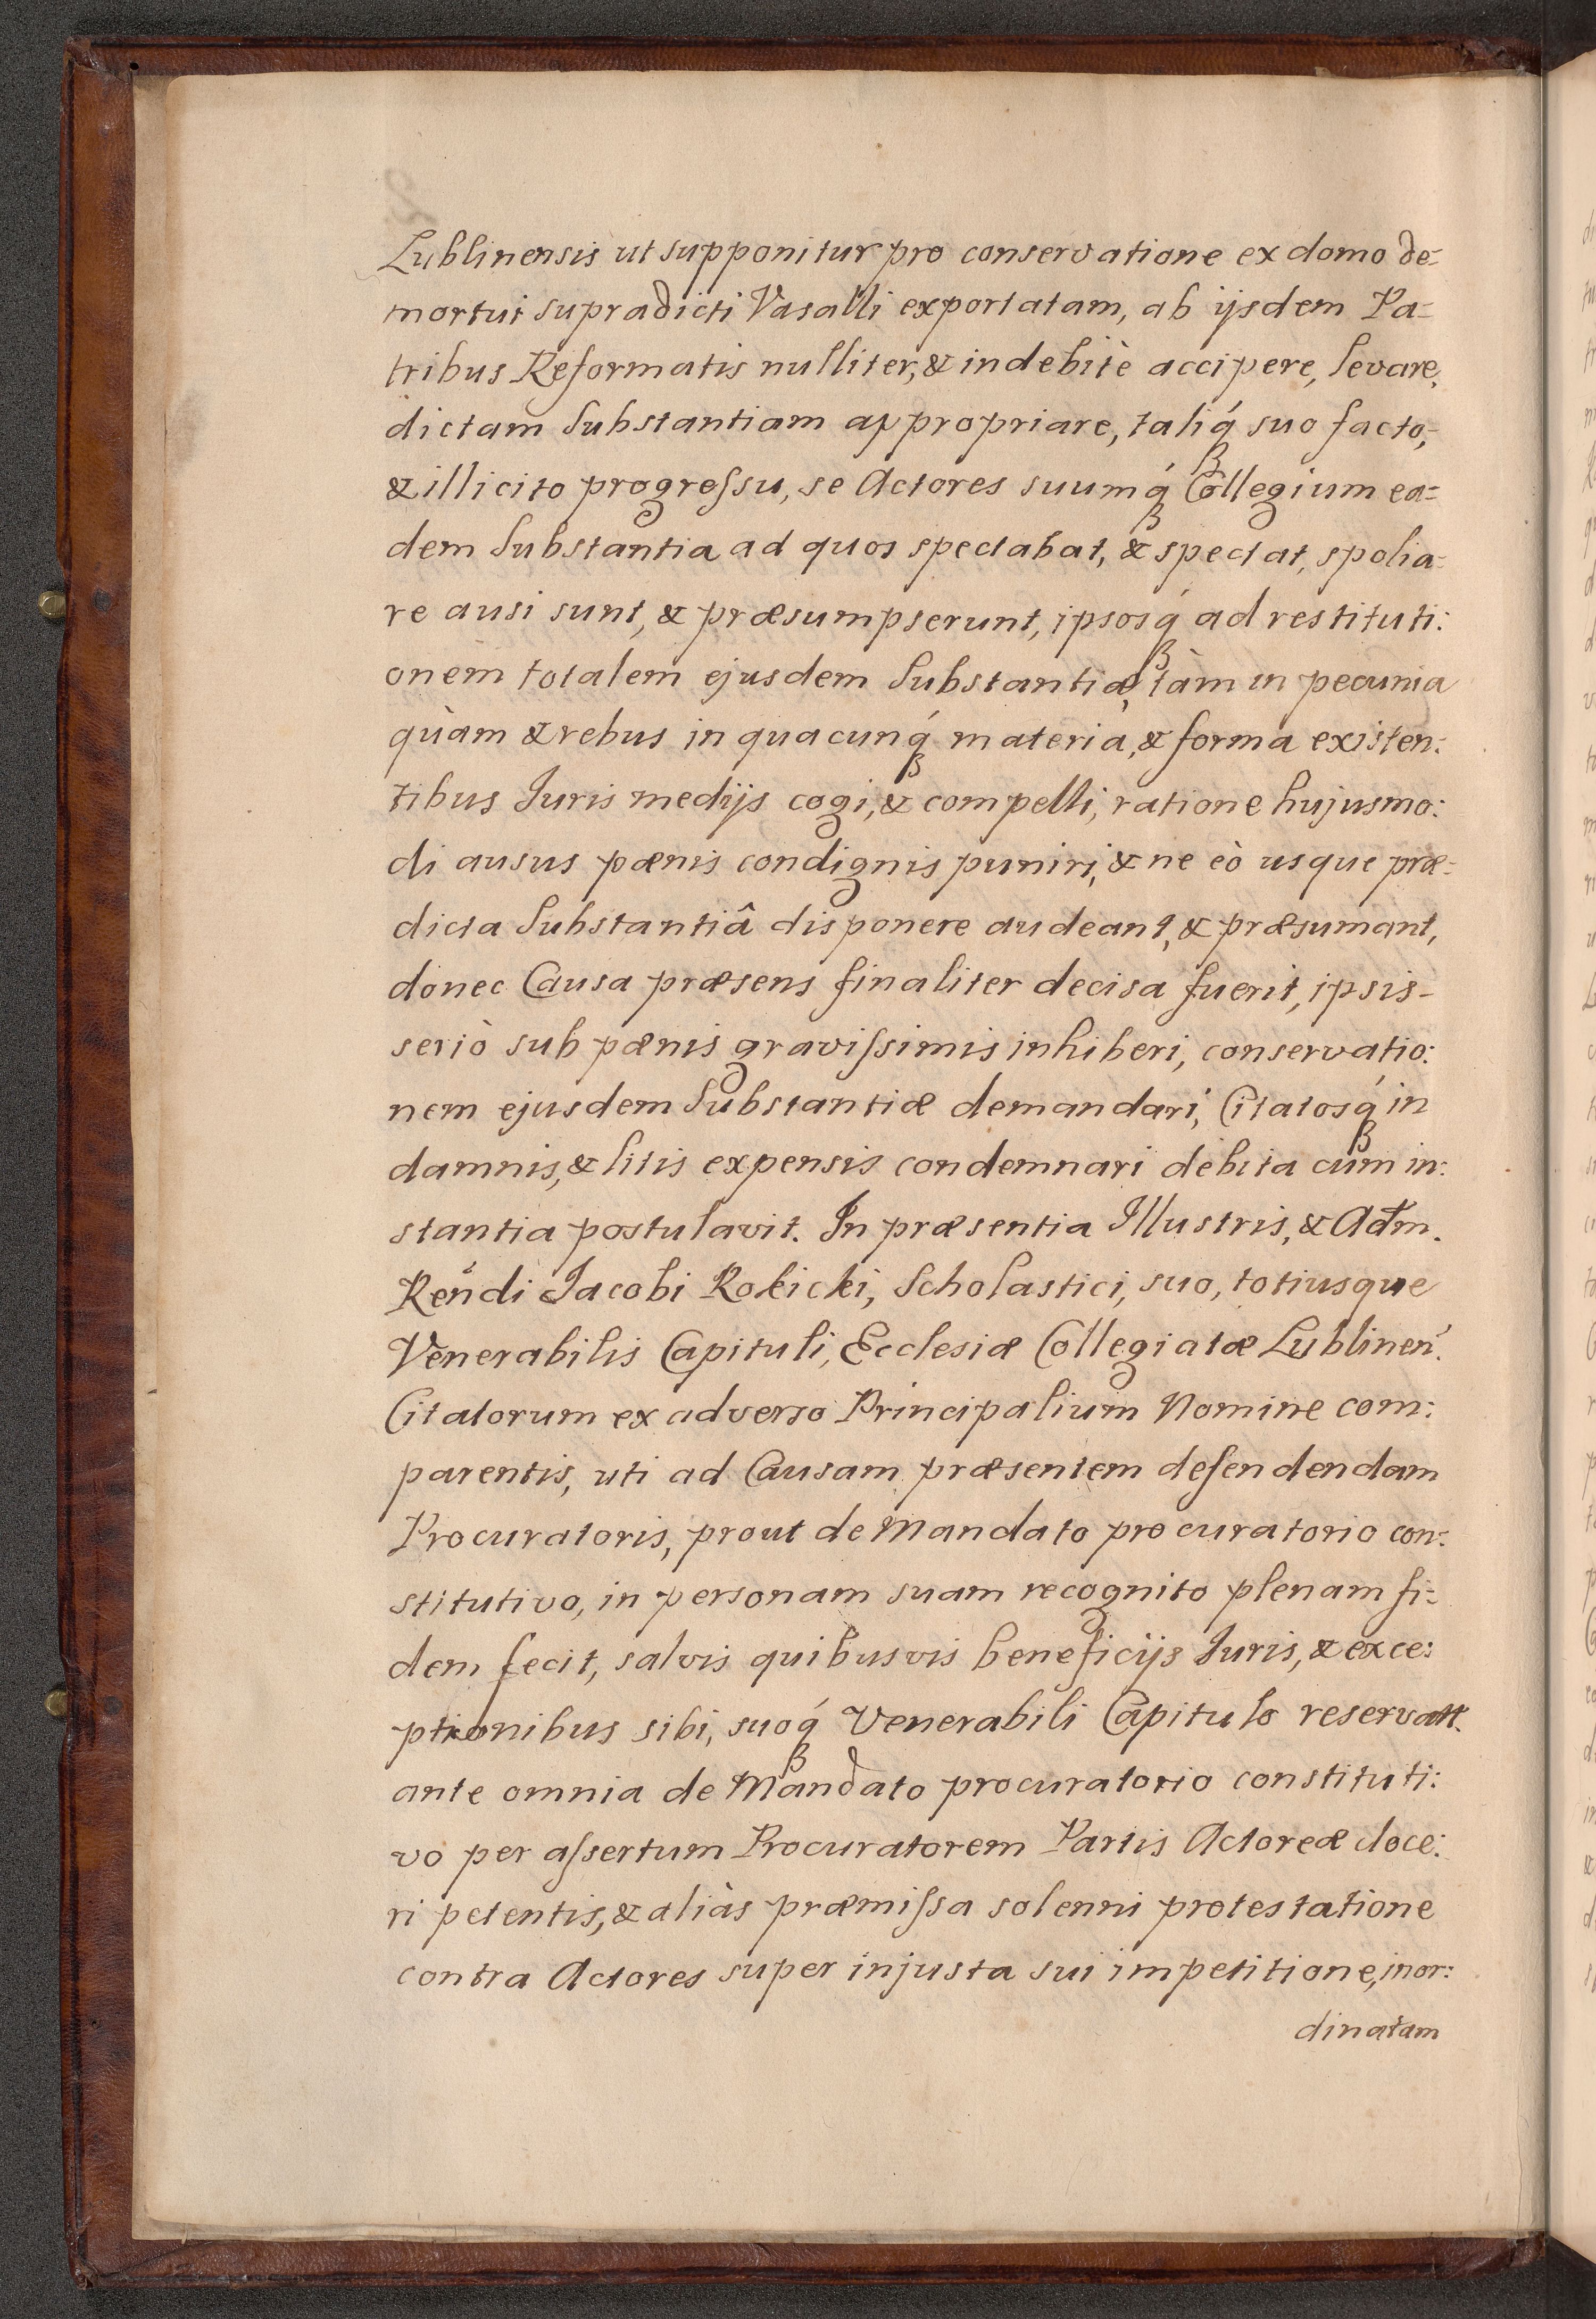 Lublinensis ut supponitur pro conservatione ex domo de=
mortui supradicti Vasalli exportatam, ab ijsdem Pa=
tribus Reformatis nulliter, & indebitè accipere, levare,
dictam Substantiam appropriare, taliq́ suo facto,
& illicito progreſsu, se Actores suumq́ Collegium ea=
dem Substantia ad quos spectabat, & spectat, spolia=
re ausi sunt, & præsumpserunt, ipsosq́ ad restituti:
onem totalem ejusdem Substantiæ, tàm in pecunia
quàm & rebus in quacunq́ materia, & forma existen:
tibus Juris medijs cogi, & compelli, ratione hujusmo:
di ausus pœnis condignis puniri, & ne eò usque præ=
dicta Substantiâ disponere audeant, & præsumant,
donec Causa præsens finaliter decisa fuerit, ipsis-
seriò sub pœnis graviſsimis inhiberi, conservatio:
nem ejusdem Substantiæ demandari, Citatosq́ in
damnis, & litis expensis condemnari debita cum in:
stantia postulavit. In præsentia Illustris, & Adm.
Reńdi Jacobi Rokicki, Scholastici, suo, totiusque
Venerabilis Capituli, Ecclesiæ Collegiatæ Lublineń.
Citatorum ex adverso Principalium Nomine com:
parentis, uti ad Causam præsentem defendendam
Procuratoris, prout de Mandato procuratorio con:
stitutivo, in personam suam recognito plenam fi=
dem fecit, salvis quibusvis beneficijs Juris, & exce:
ptionibus sibi, suoq́ Venerabili Capitulo reservatt.
ante omnia de Mandato procuratorio constituti:
vo per aſsertum Procuratorem Partis Actoreæ doce:
ri petentis, & aliàs præmiſsa solenni protestatione
contra Actores super injusta sui impetitione, inor:
dinatam